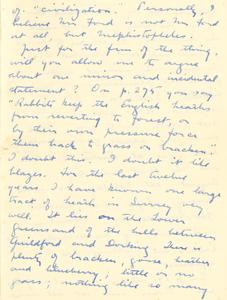 of "civilization". Personally, I
believe his Ford is not his Ford
at all, but Mephistopheles.
Just for the fun of the thing,
will you allow one to argue
about one minor and incidental
statement? On p. 275 you say
"Rabbits keep the English heaths
from reverting to forest, or
by their own pressure force
them back to grass or bracken."
I doubt this. I doubt it like
blazes. For the last twelve
years I have known one large
tract of heath in Surrey very
well. It lies on the Lower
Greensand of the hills between
Guildford and Dorking. There is
plenty of bracken, gorse, heather
and blueberry; little or no
grass; nothing like so many